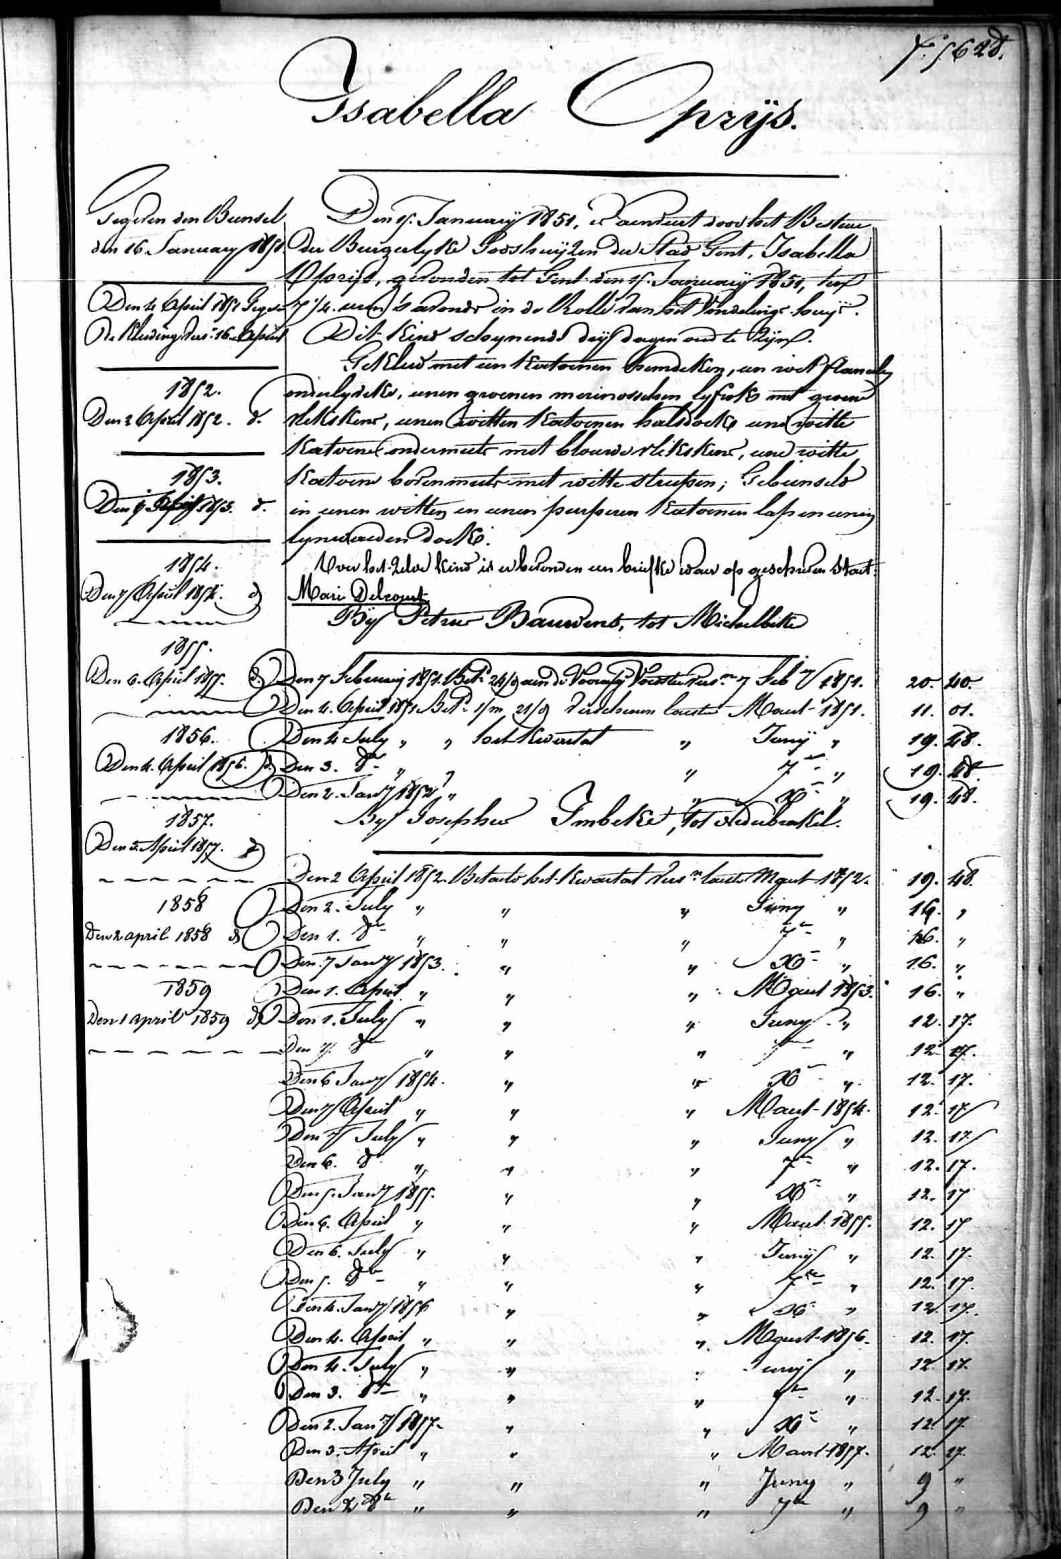 Isabella Oprijs.
Gegeven den Bunsel
den 16 January 1851
Den 4 April 1851
De Kleeding
1852.
Den 2 April 1852. d.
1853.
Den April 1853. d.
1854.
Den 7 April 1854. d
1855.
Den 6 April 1855. d.
1856.
Den 4. April 1856. d.
1857.
Den 3. April 1857. d
1858
Den 2 april 1858 d
1859
Den 1 April 1859 d
Den 15. January 1851, is aenveert door het Bestuer
der Burgerlyke Godshuyzen der Stad Gent, Isabella
Oprijs, gevonden tot Gent den 15. January 1851, ten
7 1/4 uren 's avonds in de Rolle van het Vondelings huys.
Dit kind schynende dry dagen oud te zyn.
Gekleed met een katoenen hemdeken, een wit flanelle
onderlyveke, eenen groenen merinosschen lyfrok met groene
vlekskens, eenen witten katoenen halsdoek, eene witte
katoene ondermuts met blouwe vlekskens, eene witte
katoene bovenmuts met witte streepen; Gebunseld
in eenen witten en eenen purperen katoenen lap en eenen
lynwaeden doek.
Over het zelve kind is er bevonden een briefke waer op geschreven staet:
Mari Delcourt
By Petrus Bauwens, tot Michelbeke
Den 7 February 1851. 7 Feb 1851. 20. 40.
Den 4. April 1851 Maert 1851. 11. 01.
Den 4 July " " het Kwartal " Juny " 19. 48.
Den 3. 8re " " " 7re " 19. 48
Den 2. Jany 1852 " " Xre " 19. 48.
By Josephus Imbeke, tot Nederbrakel.
Den 2 April 1852. Betaeld het Kwartal Maert 1852. 19. 48
Den 2. July " " " Juny " 16. "
Den 1. 8re " " " 7re " 16. "
Den 7 Jany 1853. " " Xre " 16. "
Den 1. April " " " Maert 1853. 16. "
Den 1. July " " " Juny " 12. 17.
Den 7. 8re " " " 7re " 12 17.
Den 6 Jany 1854. " " Xre " 12. 17.
Den 7 April " " " Maert 1854. 12. 17
Den 7 July " " " Juny " 12. 17
Den 6. 8re " " " 7re " 12. 17.
Den 5. Jany 1855. " " Xre " 12. 17
Den 6. April " " " Maert 1855. 12. 17
Den 6. July " " " Juny " 12. 17.
Den 5. 8re " " " 7re " 12. 17.
Den 4. Jany 1856 " " Xre " 12 17.
Den 4. April " " " Maert 1856. 12. 17
Den 4. July " " " Juny " 12 17.
Den 3. 8re " " " 7re " 12. 17.
Den 2. Jany 1857. " " Xre " 12. 17
Den 3. April " " " Maert 1857. 12. 17.
Den 3 July " " " Juny " 9 "
Den 2 8re " " " 7re " 9 "